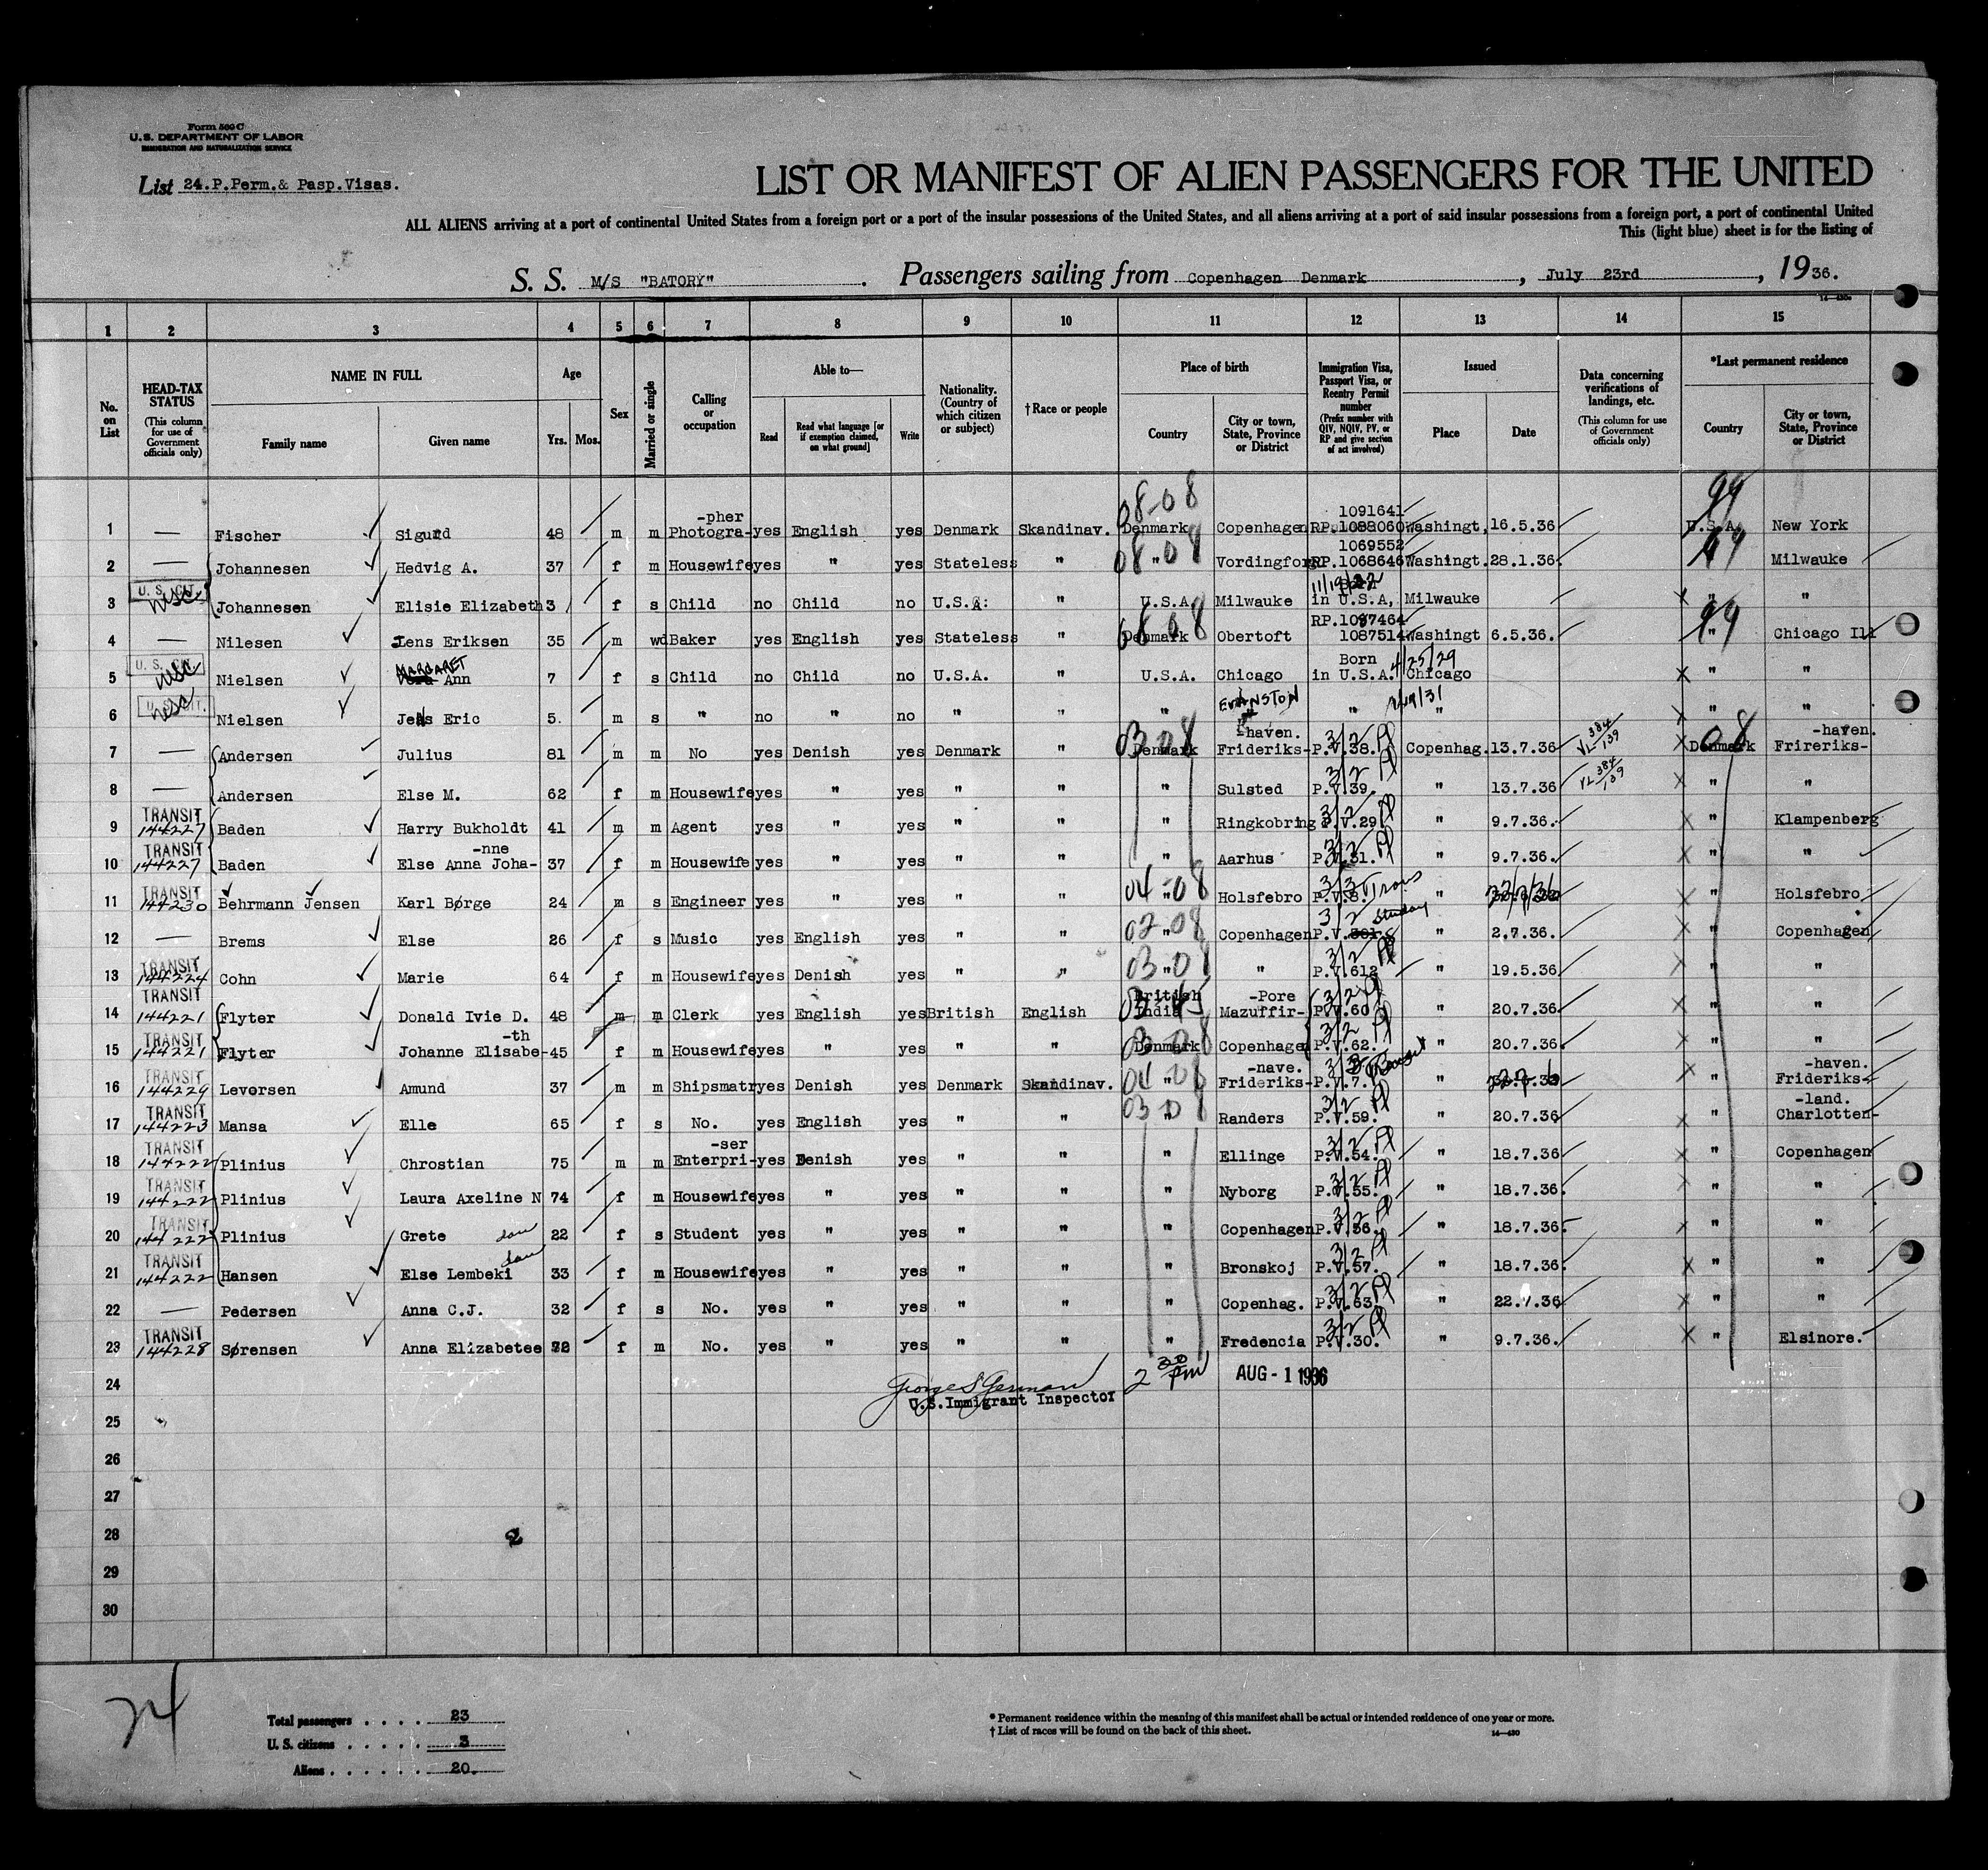 Form 500 C
U. S. DEPARTMENT OF LABOR
IMMIGRATION AND NATURALIZATION SERVICE
List 24.P.Perm.& Pasp.Visas.
LIST OR MANIFEST OF ALIEN PASSENGERS FOR THE UNITED
ALL ALIENS arriving at a port of continental United States from a foreign port or a port of the insular possessions of the United States, and all aliens arriving at a port of said insular possessions from a foreign port, a port of continental United
This (light blue) sheet is for the listing of
S. S. M/S "BATORY". Passengers sailing from Copenhagen Denmark, July 23rd, 1936.
1 2 3 4 5 6 7 8 9 10 11 12 13 14 15
No. on List
HEAD-TAX STATUS (This column for use of Government officials only)
NAME IN FULL Family name Given name
Age Yrs. Mos.
Sex
Married or single
Calling or occupation
Able to— Read Read what language [or if exemption claimed, on what ground] Write
Nationality. (Country of which citizen or subject)
† Race or people
Place of birth Country City or town, State, Province or District
Immigration Visa, Passport Visa, or Reentry Permit number (Prefix number with QIV, NQIV, PV, or RP and give section of act involved)
Issued Place Date
Data concerning verifications of landings, etc. (This column for use of Government officials only)
*Last permanent residence Country City or town, State, Province or District
08-08 99
-pher 1091641
1 — Fischer Sigurd 48 m m Photogra- yes English yes Denmark Skandinav. Denmark Copenhagen RP.1088060 Washingt. 16.5.36 U.S.A. New York
1069552
2 — Johannesen Hedvig A. 37 f m Housewife yes " yes Stateless " 08-08 " Vordingforg RP.1068646 Washingt. 28.1.36. 99 Milwauke
U. S. CIT.
3 Johannesen Elisie Elizabeth 3 f s Child no Child no U.S.A: " U.S.A. Milwauke in U.S.A, Milwauke " "
RP.1087464
4 — Nilesen Jens Eriksen 35 m wd Baker yes English yes Stateless " 08-08 Denmark Obertoft 1087514 Washingt 6.5.36. 99 " Chicago Ill
U. S. CIT. MARGARET Born 4/25/29
5 Nielsen Ann 7 f s Child no Child no U.S.A. " U.S.A. Chicago in U.S.A. Chicago " "
U. S. CIT. EVANSTON
6 Nielsen Jens Eric 5. m s " no " no " " " " " " "
-haven. 3/2 -haven.
7 — Andersen Julius 81 m m No yes Denish yes Denmark " 03-08 Denmark Frideriks- P.V.38. Copenhag. 13.7.36 VL 384/139 08 Denmark Frireriks-
8 — Andersen Else M. 62 f m Housewife yes " yes " " " Sulsted P.V.39. " 13.7.36 VL 384/139 " "
TRANSIT
9 144227 Baden Harry Bukholdt 41 m m Agent yes " yes " " " Ringkobring P.V.29 " 9.7.36. " Klampenberg
TRANSIT -nne
10 144227 Baden Else Anna Joha- 37 f m Housewife yes " yes " " " Aarhus P.V.31. " 9.7.36. " "
TRANSIT
11 144230 Behrmann Jensen Karl Børge 24 m s Engineer yes " yes " " 04-08 " Holsfebro P.V.8. Trans " " Holsfebro
12 — Brems Else 26 f s Music yes English yes " " 02-08 " Copenhagen P.V. " 2.7.36. " Copenhagen
TRANSIT
13 144224 Cohn Marie 64 f m Housewife yes Denish yes " " 03-08 " " P.V.612 " 19.5.36 " "
TRANSIT British -Pore
14 144221 Flyter Donald Ivie D. 48 m m Clerk yes English yes British English India Mazuffir- P.V.60 " 20.7.36 " "
TRANSIT -th
15 144221 Flyter Johanne Elisabe- 45 f m Housewife yes " yes " " 03-08 Denmark Copenhagen P.V.62. " 20.7.36 " "
TRANSIT -nave. -haven.
16 144229 Leversen Amund 37 m m Shipsmatr yes Denish yes Denmark Skandinav. 04-08 " Frideriks- P.V.7. " " Frideriks-
TRANSIT -land.
17 144223 Mansa Elle 65 f s No. yes English yes " " 03-08 " Randers P.V.59. " 20.7.36 " Charlotten-
TRANSIT -ser
18 144222 Plinius Chrostian 75 m m Enterpri- yes Denish yes " " " Ellinge P.V.54. " 18.7.36 " Copenhagen
TRANSIT
19 144222 Plinius Laura Axeline N 74 f m Housewife yes " yes " " " Nyborg P.V.55. " 18.7.36. " "
TRANSIT
20 144222 Plinius Grete dau 22 f s Student yes " yes " " " Copenhagen P.V.56. " 18.7.36. " "
TRANSIT
21 144222 Hansen Else Lembeki dau 33 f m Housewife yes " yes " " " Bronskoj P.V.57. " 18.7.36. " "
22 — Pedersen Anna C.J. 32 f s No. yes " yes " " " Copenhag. P.V.63. " 22.7.36 " "
TRANSIT
23 144228 Sørensen Anna Elizabetee f m No. yes " yes " " " Fredencia P.V.30. " 9.7.36. " Elsinore.
24 George S German 2 30 Pm AUG - 1 1936
U.S.Immigrant Inspector
25
26
27
28
29
30
24
Total passengers . . . . 23
U. S. citizens . . . . . 3
Aliens . . . . . . 20.
* Permanent residence within the meaning of this manifest shall be actual or intended residence of one year or more.
† List of races will be found on the back of this sheet.
14—430